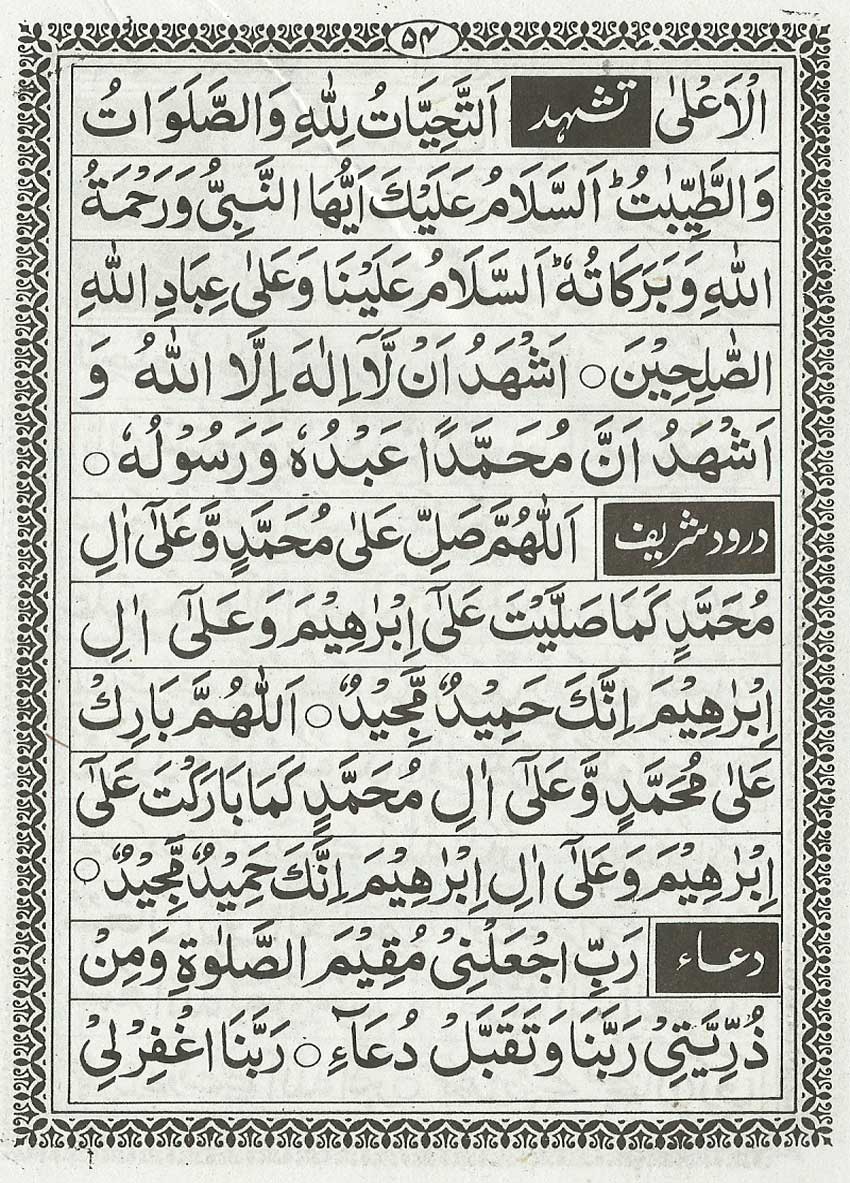 ۵۴
الْاَعْلٰى تشہد اَلتَّحِيَّاتُ لِلّٰهِ وَالصَّلَوَاتُ
وَالطَّيِّبٰتُ ؕ اَلسَّلَامُ عَلَيْكَ اَيُّهَا النَّبِىُّ وَرَحْمَةُ
اللّٰهِ وَبَرَكَاتُهٗ ؕ اَلسَّلَامُ عَلَيْنَا وَعَلٰى عِبَادِ اللّٰهِ
الصّٰلِحِيْنَ ○ اَشْهَدُ اَنْ لَّاۤ اِلٰهَ اِلَّا اللّٰهُ وَ
اَشْهَدُ اَنَّ مُحَمَّدًا عَبْدُهٗ وَرَسُوْلُهٗ ○
درود شریف اَللّٰهُمَّ صَلِّ عَلٰى مُحَمَّدٍ وَّعَلٰۤى اٰلِ
مُحَمَّدٍ كَمَا صَلَّيْتَ عَلٰۤى اِبْرٰهِيْمَ وَعَلٰۤى اٰلِ
اِبْرٰهِيْمَ اِنَّكَ حَمِيْدٌ مَّجِيْدٌ ○ اَللّٰهُمَّ بَارِكْ
عَلٰى مُحَمَّدٍ وَّعَلٰۤى اٰلِ مُحَمَّدٍ كَمَا بَارَكْتَ عَلٰۤى
اِبْرٰهِيْمَ وَعَلٰۤى اٰلِ اِبْرٰهِيْمَ اِنَّكَ حَمِيْدٌ مَّجِيْدٌ ○
دعاء رَبِّ اجْعَلْنِىْ مُقِيْمَ الصَّلٰوةِ وَمِنْ
ذُرِّيَّتِىْ رَبَّنَا وَتَقَبَّلْ دُعَآءِ ○ رَبَّنَا اغْفِرْ لِىْ